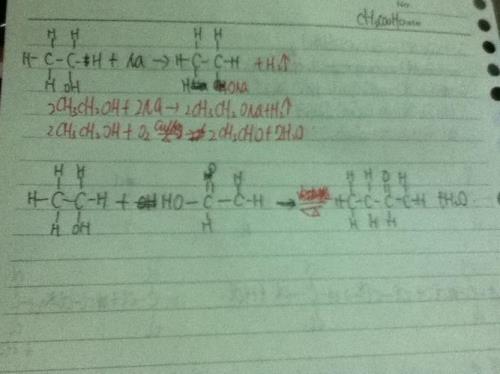 CH3COOH
H H H H
H-C-C-H + Na → H-C-C-H + H2↑
H OH H ONa
2CH3CH2OH + 2Na → 2CH3CH2ONa + H2↑
2CH3CH2OH + O2 Cu/Ag △ → 2CH3CHO + 2H2O
H H O H H H O
H-C-C-H + HO-C-C-H → △ H-C-C-C-C-H + H2O
H OH H H H H